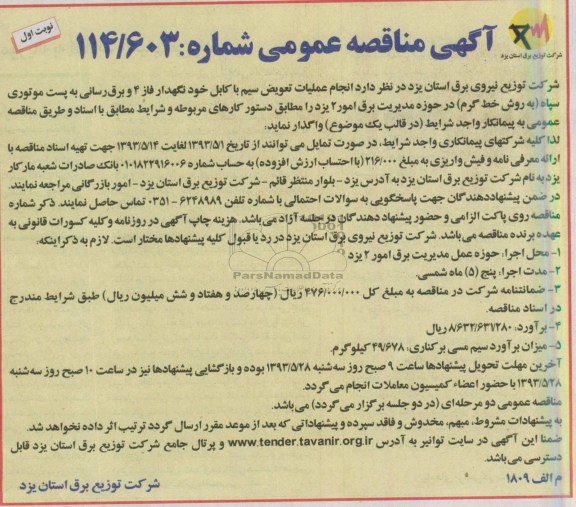 نوبت اول
آگهی مناقصه عمومی شماره: ۱۱۴/۶۰۳
شرکت توزیع برق استان یزد
شرکت توزیع نیروی برق استان یزد در نظر دارد انجام عملیات تعویض سیم با کابل خود نگهدار فاز ۴ و برق رسانی به پست موتوری
سپاه (به روش خط گرم) در حوزه مدیریت برق امور۲ یزد را مطابق دستور کارهای مربوطه و شرایط مطابق با اسناد و طریق مناقصه
عمومی به پیمانکار واجد شرایط (در قالب یک موضوع) واگذار نماید:
لذا کلیه شرکتهای پیمانکاری واجد شرایط، در صورت تمایل می توانند از تاریخ ۱۳۹۳/۵/۱ لغایت ۱۳۹۳/۵/۱۴ جهت تهیه اسناد مناقصه با
ارائه معرفی نامه و فیش واریزی به مبلغ ۲۱۶/۰۰۰ (با احتساب ارزش افزوده) به حساب شماره ۰۱۰۱۸۲۲۹۱۶۰۰۶ بانک صادرات شعبه مارکار
یزد به نام شرکت توزیع برق استان یزد به آدرس یزد - بلوار منتظر قائم - شرکت توزیع برق استان یزد - امور بازرگانی مراجعه نمایند.
در ضمن پیشنهاددهندگان جهت پاسخگویی به سوالات احتمالی با شماره تلفن ۶۲۴۸۹۸۹ - ۰۳۵۱ تماس حاصل نمایند. ذکر شماره
مناقصه روی پاکت الزامی و حضور پیشنهاد دهندگان در جلسه آزاد می باشد. هزینه چاپ آگهی در روزنامه و کلیه کسورات قانونی به
عهده برنده مناقصه می باشد. شرکت توزیع نیروی برق استان یزد در رد یا قبول کلیه پیشنهادها مختار است. لازم به ذکر اینکه:
۱- محل اجرا: حوزه عمل مدیریت برق امور ۲ یزد
۲- مدت اجرا: پنج (۵) ماه شمسی.
ParsNamadData
۳- ضمانتنامه شرکت در مناقصه به مبلغ کل ۴۷۶/۰۰۰/۰۰۰ ریال (چهارصد و هفتاد و شش میلیون ریال) طبق شرایط مندرج
در اسناد مناقصه.
۴- برآورد: ۸/۶۳۲/۶۳۱/۲۸۰ ریال
۵- میزان برآورد سیم مسی برکناری: ۴۹/۶۷۸ کیلوگرم.
آخرین مهلت تحویل پیشنهادها ساعت ۹ صبح روز سه شنبه ۱۳۹۳/۵/۲۸ بوده و بازگشایی پیشنهادها نیز در ساعت ۱۰ صبح روز سه شنبه
۱۳۹۳/۵/۲۸ با حضور اعضاء کمیسیون معاملات انجام می گردد.
مناقصه عمومی دو مرحله ای (در دو جلسه برگزار می گردد) می باشد.
به پیشنهادات مشروط، مبهم، مخدوش و فاقد سپرده و پیشنهاداتی که بعد از موعد مقرر ارسال گردد ترتیب اثر داده نخواهد شد.
ضمنا این آگهی در سایت توانیر به آدرس www.tender.tavanir.org.ir و پرتال جامع شرکت توزیع برق استان یزد قابل
دسترسی می باشد.
م الف ۱۸۰۹
شرکت توزیع برق استان یزد